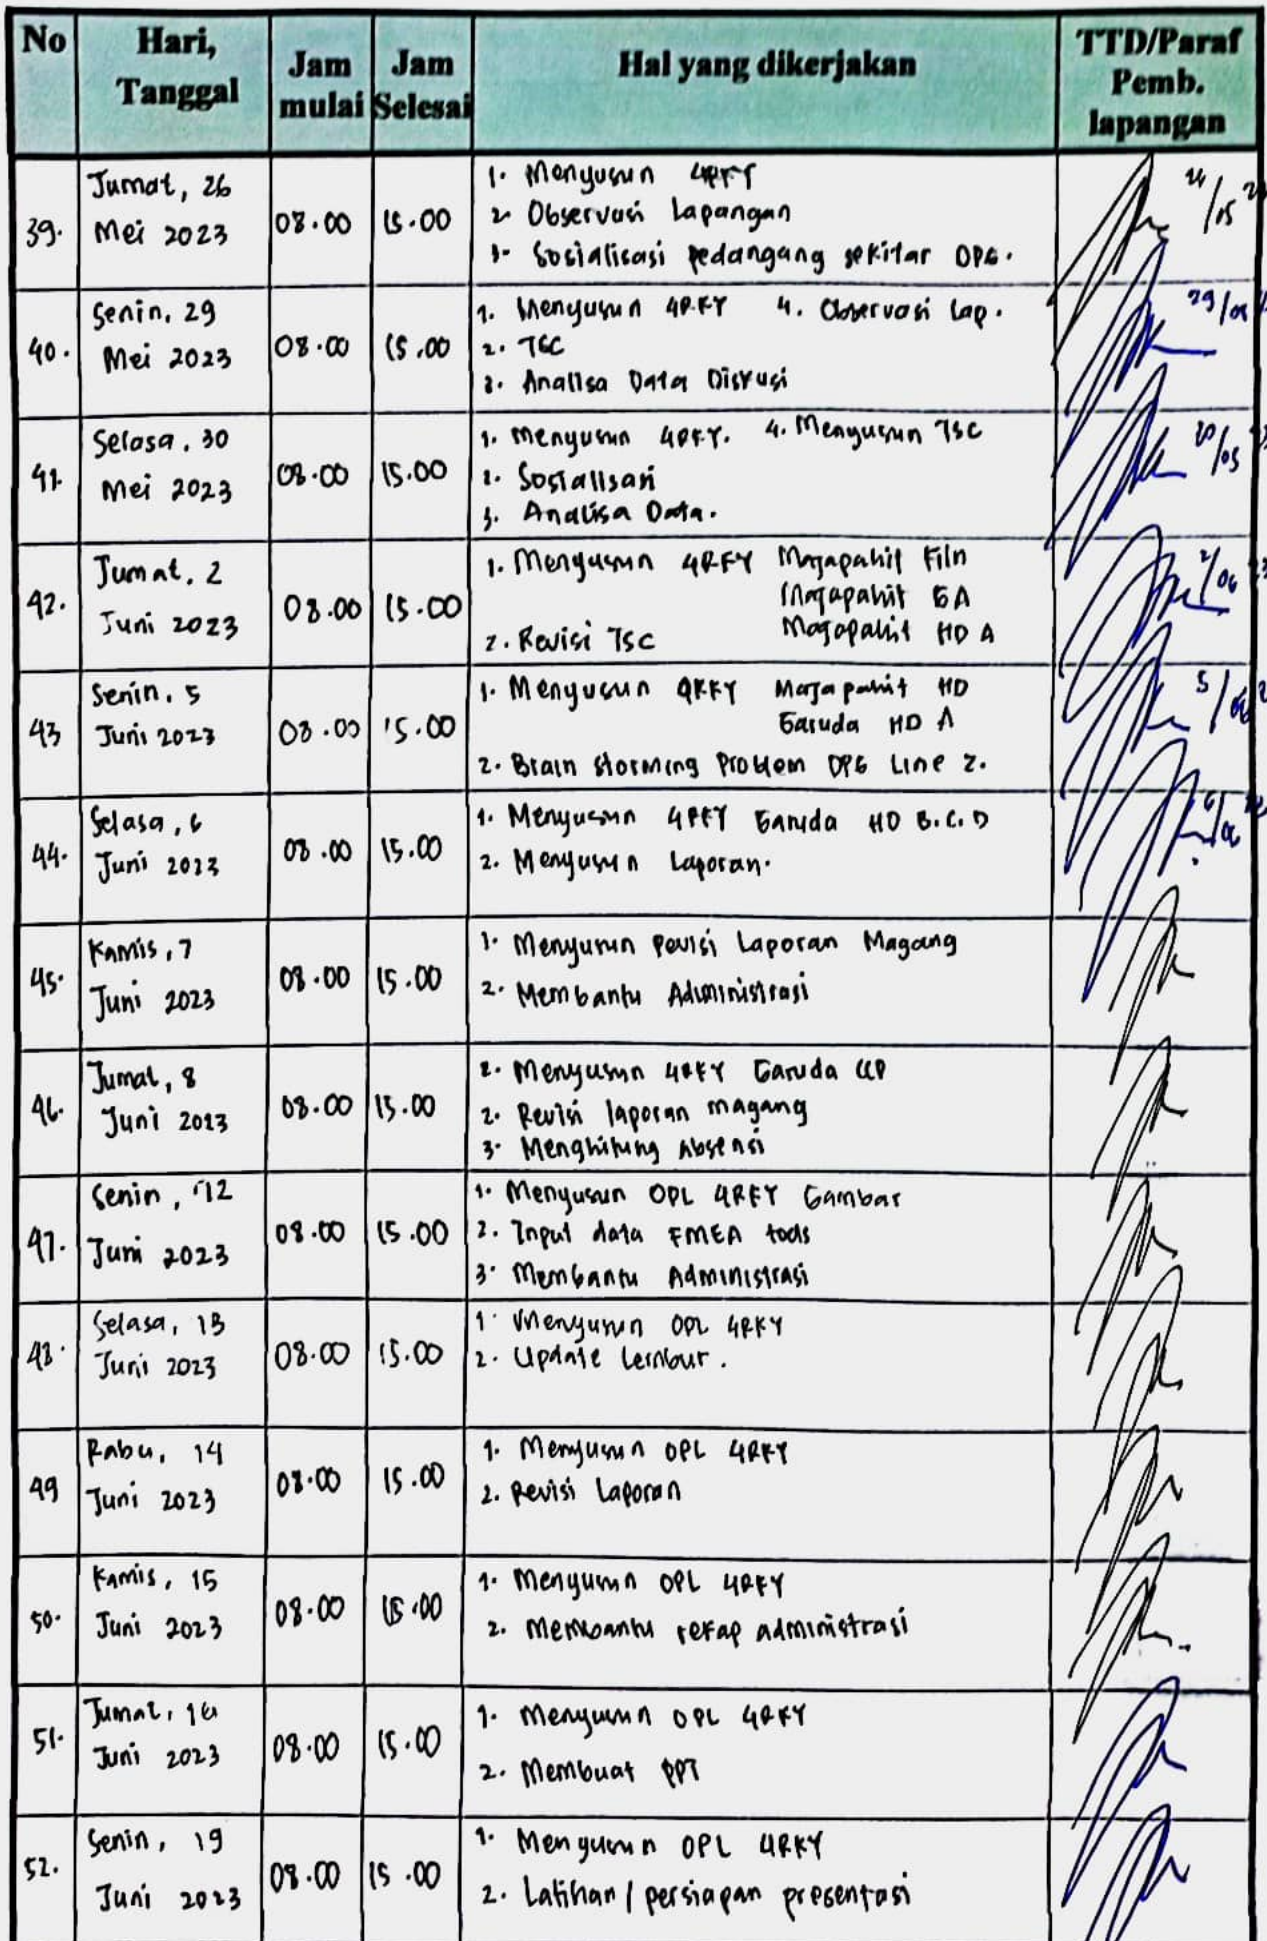 No Hari, Tanggal Jam mulai Jam Selesai Hal yang dikerjakan TTD/Paraf Pemb. lapangan
39. Jumat, 26 Mei 2023 08.00 15.00
1. Menyusun 4RKY
2. Observasi Lapangan
3. Sosialisasi pedangang sekitar OPG.
40. Senin, 29 Mei 2023 08.00 15.00 29/05
1. Menyusun 4RKY 4. Observasi Lap.
2. TSC
3. Analisa Data Diskusi
41. Selasa, 30 Mei 2023 08.00 15.00 30/05
1. Menyusun 4RKY. 4. Menyusun TSC
2. Sosialisasi
3. Analisa Data.
42. Jumat, 2 Juni 2023 08.00 15.00 2/06
1. Menyusun 4RKY Majapahit Filn
Majapahit GA
2. Revisi TSC Majapahit HD A
43 Senin, 5 Juni 2023 08.00 15.00 5/06
1. Menyusun 4RKY Majapahit HD
Garuda HD A
2. Brain storming Problem OPG Line 2.
44. Selasa, 6 Juni 2023 08.00 15.00 6/06
1. Menyusun 4RKY Garuda HD B.C.D
2. Menyusun Laporan.
45. Kamis, 7 Juni 2023 08.00 15.00
1. Menyusun revisi Laporan Magang
2. Membantu Administrasi
46. Jumat, 8 Juni 2023 08.00 15.00
2. Menyusun 4RKY Garuda CCP
2. Revisi laporan magang
3. Menghitung Absensi
47. Senin, 12 Juni 2023 08.00 15.00
1. Menyusun OPL 4RKY Gambar
2. Input data FMEA tools
3. Membantu Administrasi
48. Selasa, 13 Juni 2023 08.00 15.00
1. Menyusun OPL 4RKY
2. Update Lembur.
49 Rabu, 14 Juni 2023 08.00 15.00
1. Menyusun OPL 4RKY
2. Revisi Laporan
50. Kamis, 15 Juni 2023 08.00 15.00
1. Menyusun OPL 4RKY
2. Membantu rekap administrasi
51. Jumat, 16 Juni 2023 08.00 15.00
1. Menyusun OPL 4RKY
2. Membuat PPT
52. Senin, 19 Juni 2023 08.00 15.00
1. Menyusun OPL 4RKY
2. Latihan / persiapan presentasi